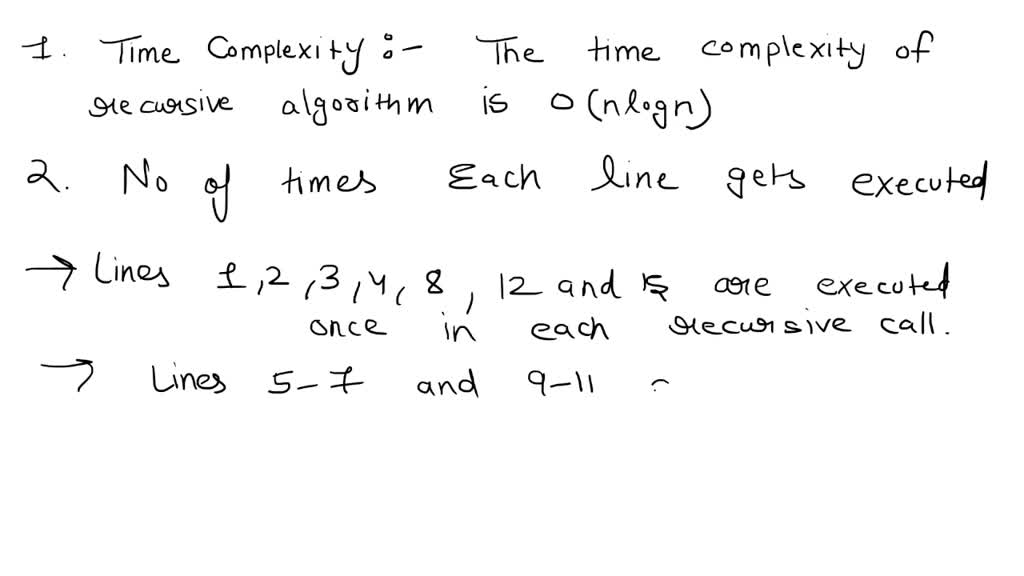 1. Time Complexity :- The time complexity of
recursive algorithm is O(nlogn)
2. No of times Each line gets executed
→ Lines 1, 2, 3, 4, 8, 12 and are executed
once in each recursive call.
→ Lines 5-7 and 9-11